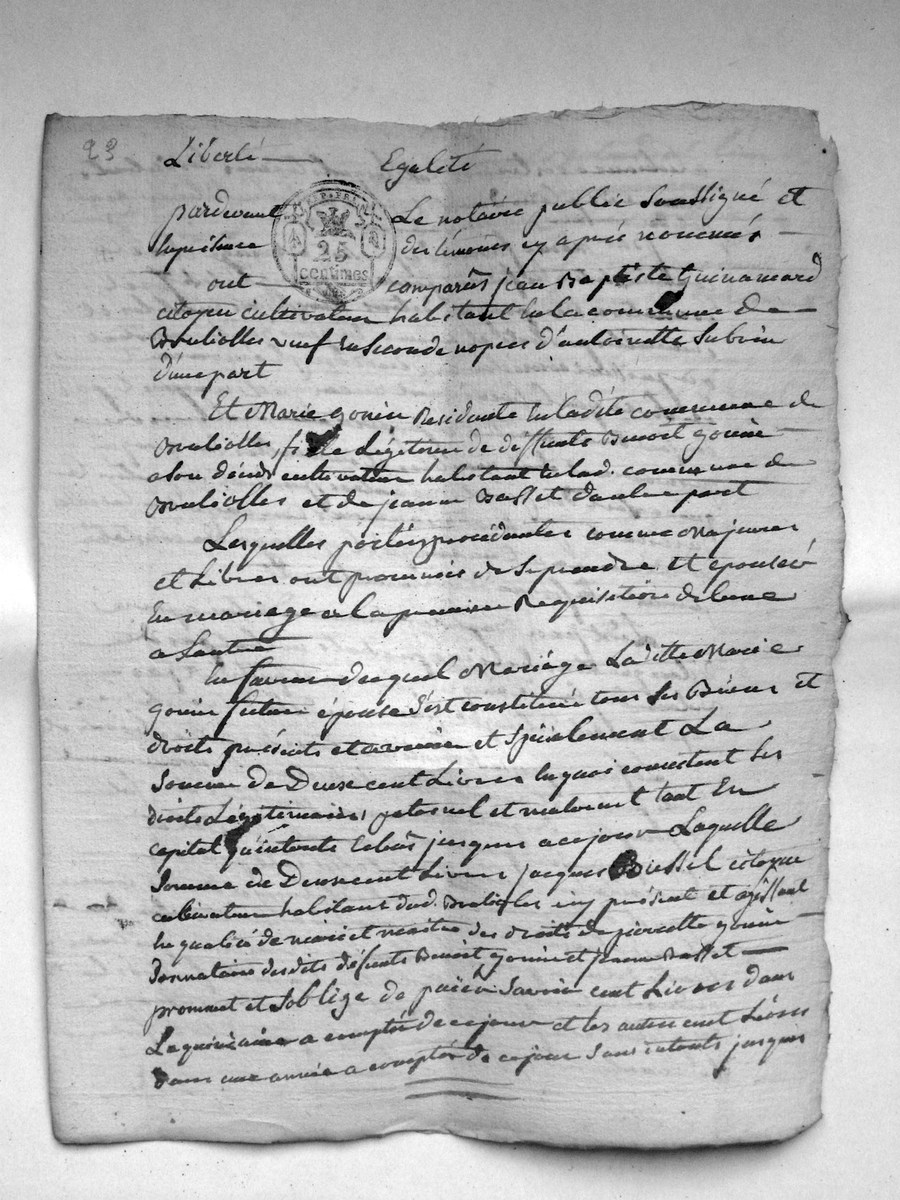 23
Liberté Egalité
REP. FRA.
25
centimes
pardevant Le notaire public Soussigné et
la présence des témoins cy après nommés
ont comparûs jean Baptiste Guinamard
citoyen cultivateur habitant en la commune de
Brulliolles veuf en Seconde nopces d'antoinette Subrin
d'une part
Et Marie gonin Residante en ladite commune de
Brulliolles, fille Légitime de deffunts Benoit gonin
a son décès cultivateur habitant en lad. commune de
Brulliolles et de jeanne Basset d'autre part
Lesquelles parties procédantes comme Majeures
et Libres ont promis de Se prendre et épouser
En mariage a la premiere Requisition de l'une
a Lautre
En faveur duquel Mariage Laditte Marie
gonin future épouse S'est constituée tous Ses Biens et
droits présents et avenir et Spécialement La
Somme de Deux cent Livres En quoi consistent Ses
droits Légitimaires, paternel et maternel tant En
capital qu'intérêts jusques a ce jour Laquelle
Somme de Deux cent Livres jacques citoyen
cultivateur habitant dud. Brulliolles cy présent et agissant
En qualité de mari et maitre des droits de pierrette gonin
Donnataire desdits défunts Benoit gonin et jeanne Basset
promet et S'oblige de païer Savoir cent Livres dans
La quinzaine a compter de ce jour et les autres cent Livres
dans une année a compter de ce jour Sans intérêts jusques